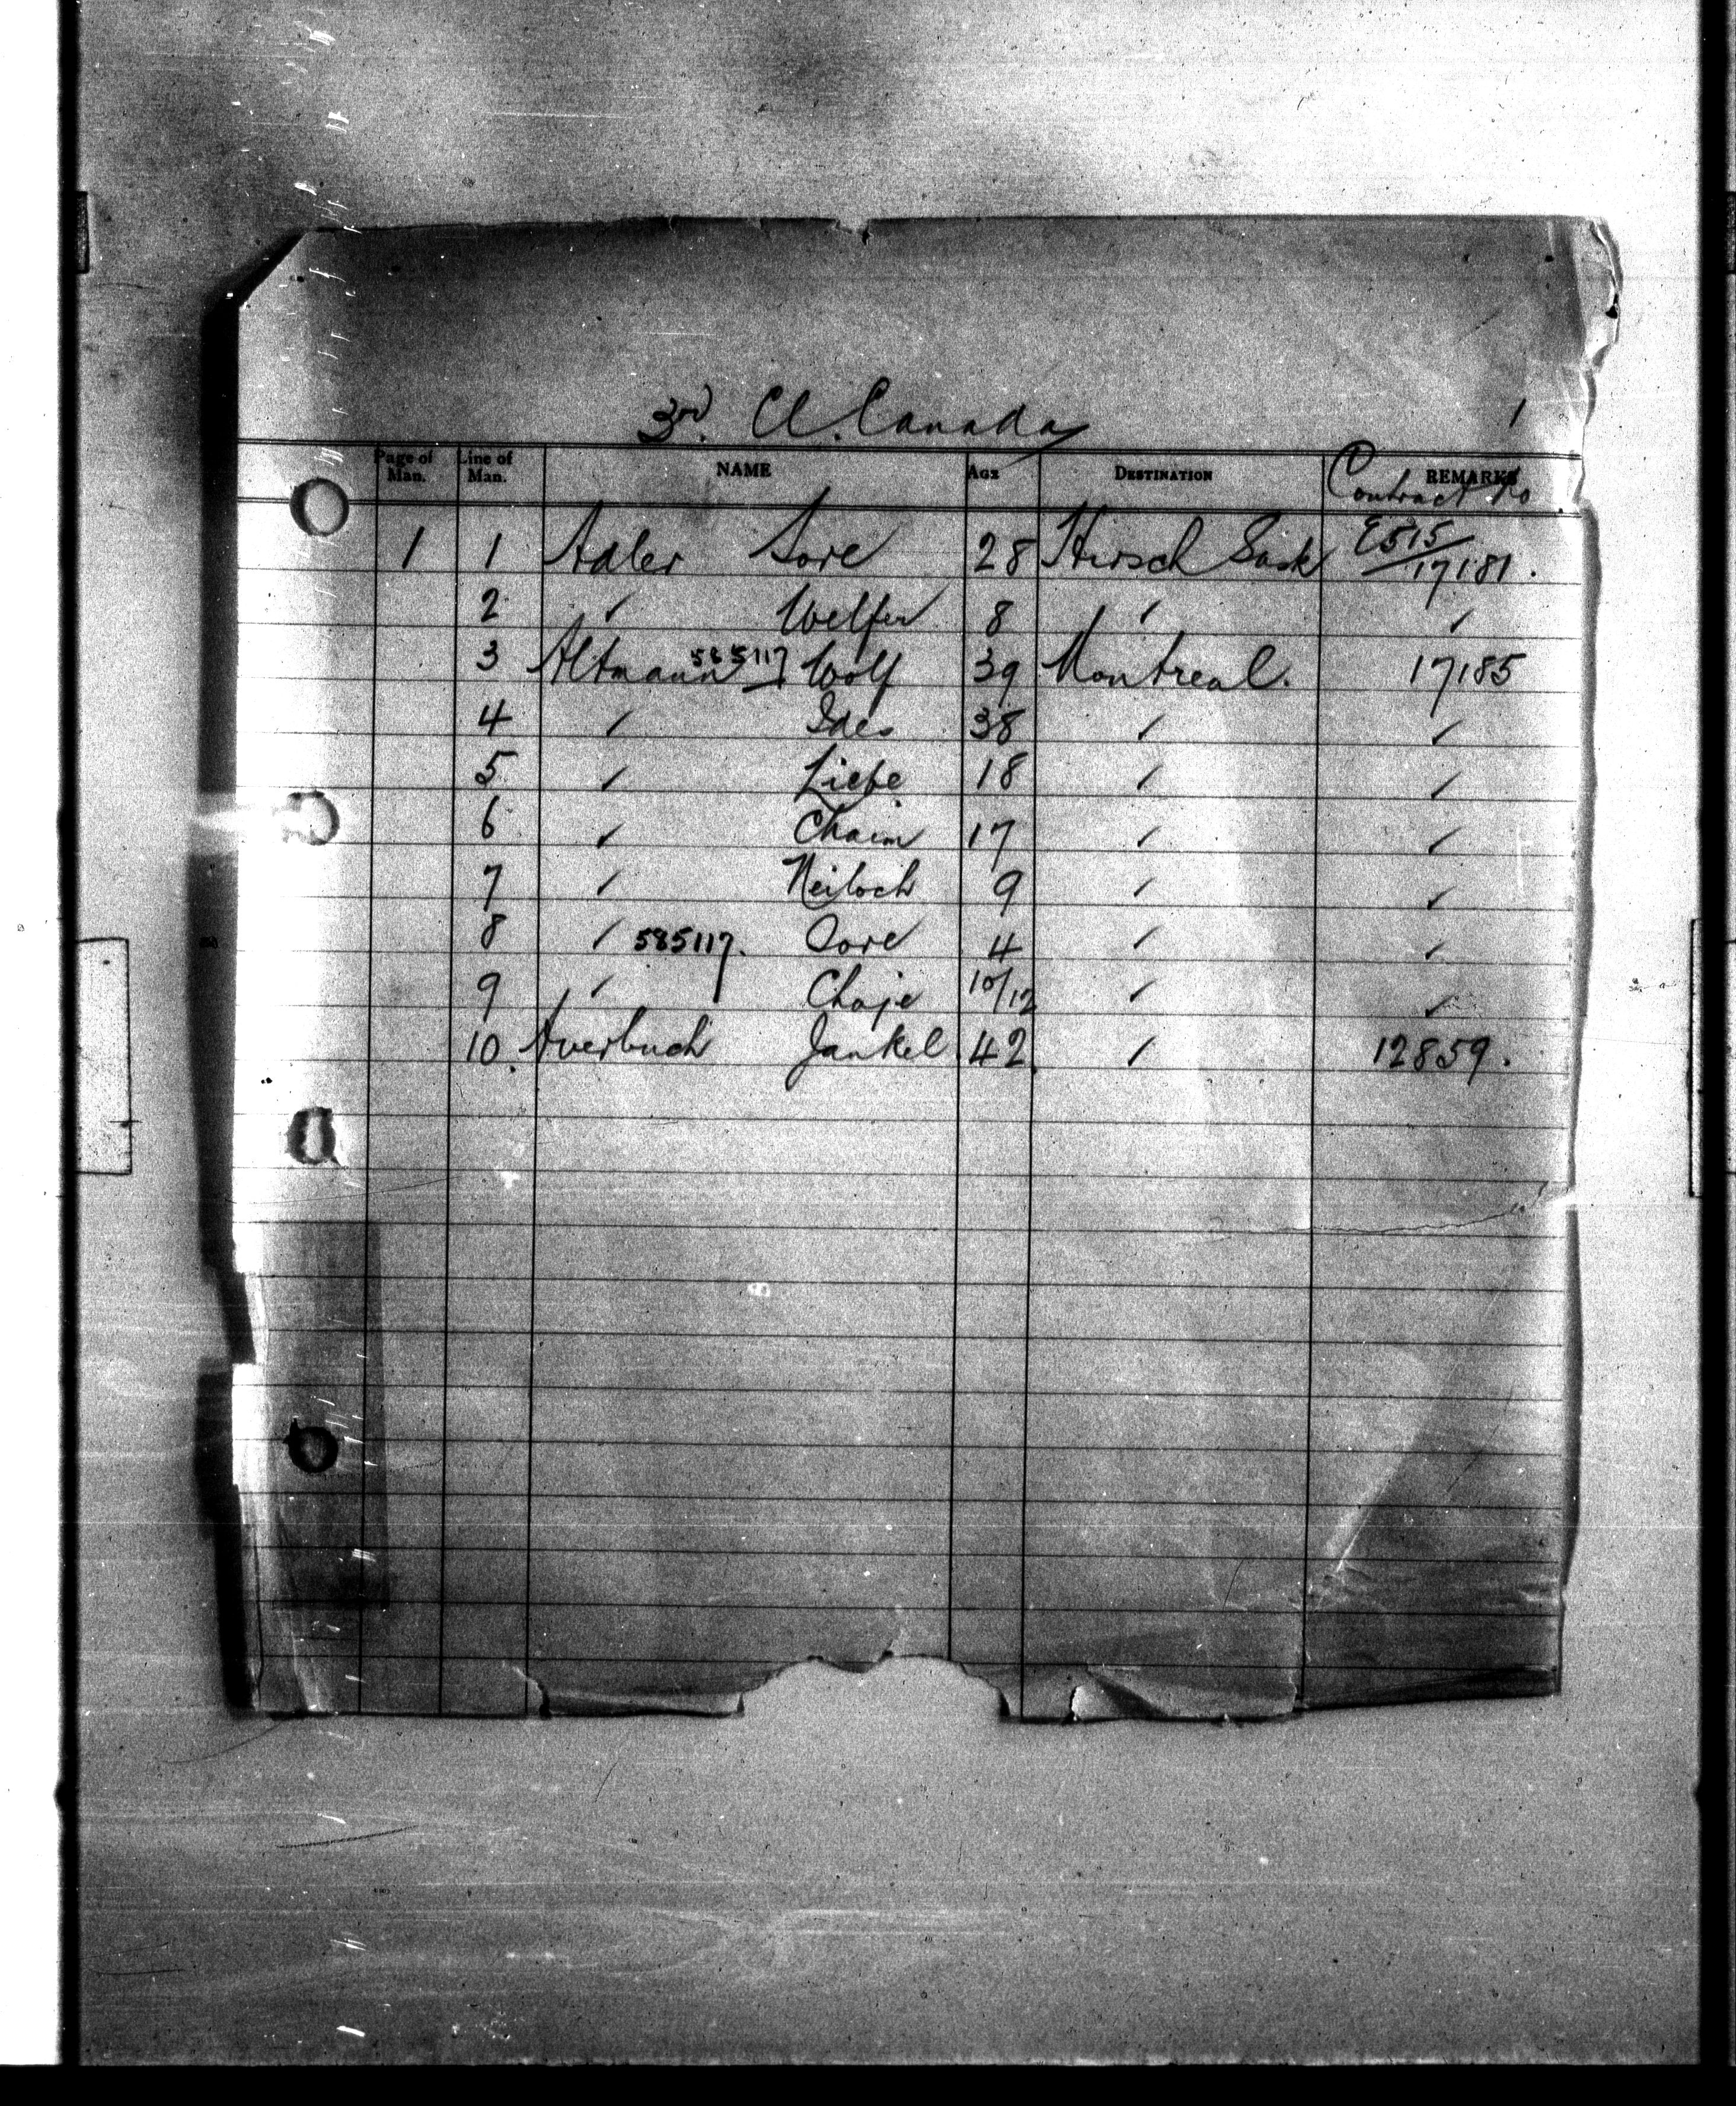 3rd. Cl. Canada 1
Page of Man. Line of Man. NAME AGE DESTINATION REMARKS Contract No
1 1 Adler Sore 28 Hirsch Sask E515/17181.
2 ✓ Welfer 8 ✓ ✓
3 Altmann 585117 Wolf 39 Montreal. 17185
4 ✓ Ides 38 ✓ ✓
5 ✓ Liebe 18 ✓ ✓
6 ✓ Chaim 17 ✓ ✓
7 ✓ 9 ✓ ✓
8 ✓ 585117. Sore 4 ✓ ✓
9 ✓ Chaje 10/12 ✓ ✓
10. Averbuch Jankel 42 ✓ 12859.